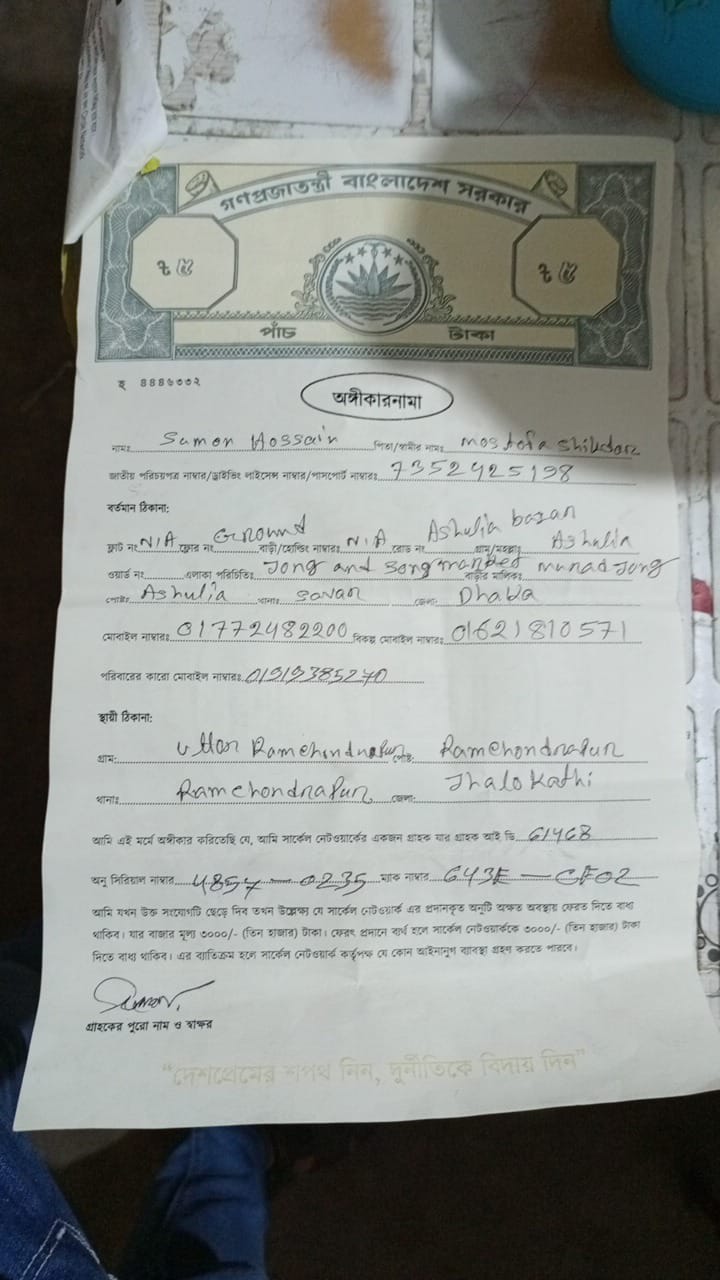 গণপ্রজাতন্ত্রী বাংলাদেশ সরকার
৳ ৫ ৳ ৫
পাঁচ টাকা
হ ৪৪৪৬৩৩২
অঙ্গীকারনামা
নামঃ Sumon Hossain পিতা/স্বামীর নামঃ Mostofa Shikdar
জাতীয় পরিচয়পত্র নাম্বার/ড্রাইভিং লাইসেন্স নাম্বার/পাসপোর্ট নাম্বারঃ 7352425198
বর্তমান ঠিকানা:
ফ্লাট নং N/A ফ্লোর নং Ground বাড়ী/হোল্ডিং নাম্বারঃ N/A রোড নং Ashulia bazar গ্রাম/মহল্লাঃ Ashulia
ওয়ার্ড নং এলাকা পরিচিতিঃ Jong and Song market বাড়ীর মালিকঃ Murad Jong
পোষ্টঃ Ashulia থানাঃ Savar জেলা: Dhaka
মোবাইল নাম্বারঃ 01772482200 বিকল্প মোবাইল নাম্বারঃ 01621810571
পরিবারের কারো মোবাইল নাম্বারঃ 01919385270
স্থায়ী ঠিকানা:
গ্রাম: Uttar Ramchondrapur পোষ্ট: Ramchondrapur
থানাঃ Ramchondrapur জেলা: Jhalokathi
আমি এই মর্মে অঙ্গীকার করিতেছি যে, আমি সার্কেল নেটওয়ার্কের একজন গ্রাহক যার গ্রাহক আই ডি 61468
অনু সিরিয়াল নাম্বার 4857-0235 ম্যাক নাম্বার 643E-CF02
আমি যখন উক্ত সংযোগটি ছেড়ে দিব তখন উল্লেক্ষ্য যে সার্কেল নেটওয়ার্ক এর প্রদানকৃত অনুটি অক্ষত অবস্থায় ফেরত দিতে বাধ্য
থাকিব। যার বাজার মূল্য ৩০০০/- (তিন হাজার) টাকা। ফেরৎ প্রদানে ব্যর্থ হলে সার্কেল নেটওয়ার্ককে ৩০০০/- (তিন হাজার) টাকা
দিতে বাধ্য থাকিব। এর ব্যাতিক্রম হলে সার্কেল নেটওয়ার্ক কর্তৃপক্ষ যে কোন আইনানুগ ব্যাবস্থা গ্রহণ করতে পারবে।
Sumon
গ্রাহকের পুরো নাম ও স্বাক্ষর
“দেশপ্রেমের শপথ নিন, দুর্নীতিকে বিদায় দিন”